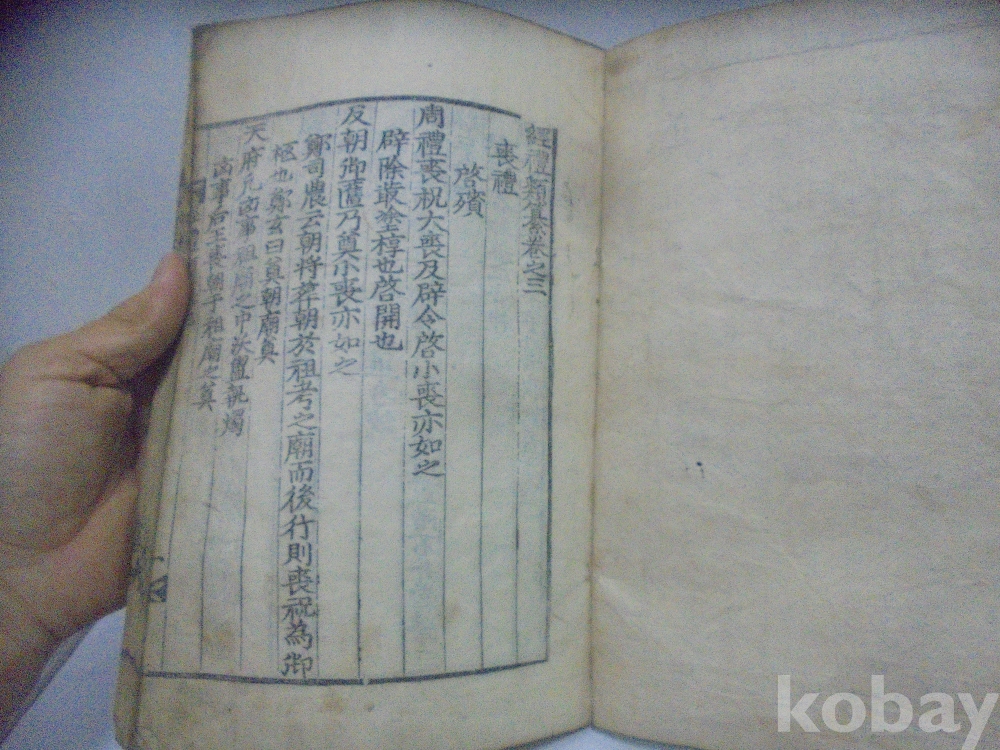 經禮類纂卷之三
喪禮
啓殯
周禮喪祝大喪及辟令啓小喪亦如之
辟除菆塗椁也啓開也
及朝御匶乃奠小喪亦如之
鄭司農云朝將葬朝於祖考之廟而後行則喪祝為御
柩也鄭玄曰奠朝廟奠
天府凡凶事祖廟之中沃盥執燭
凶事后王喪朝于祖廟之奠
kobay